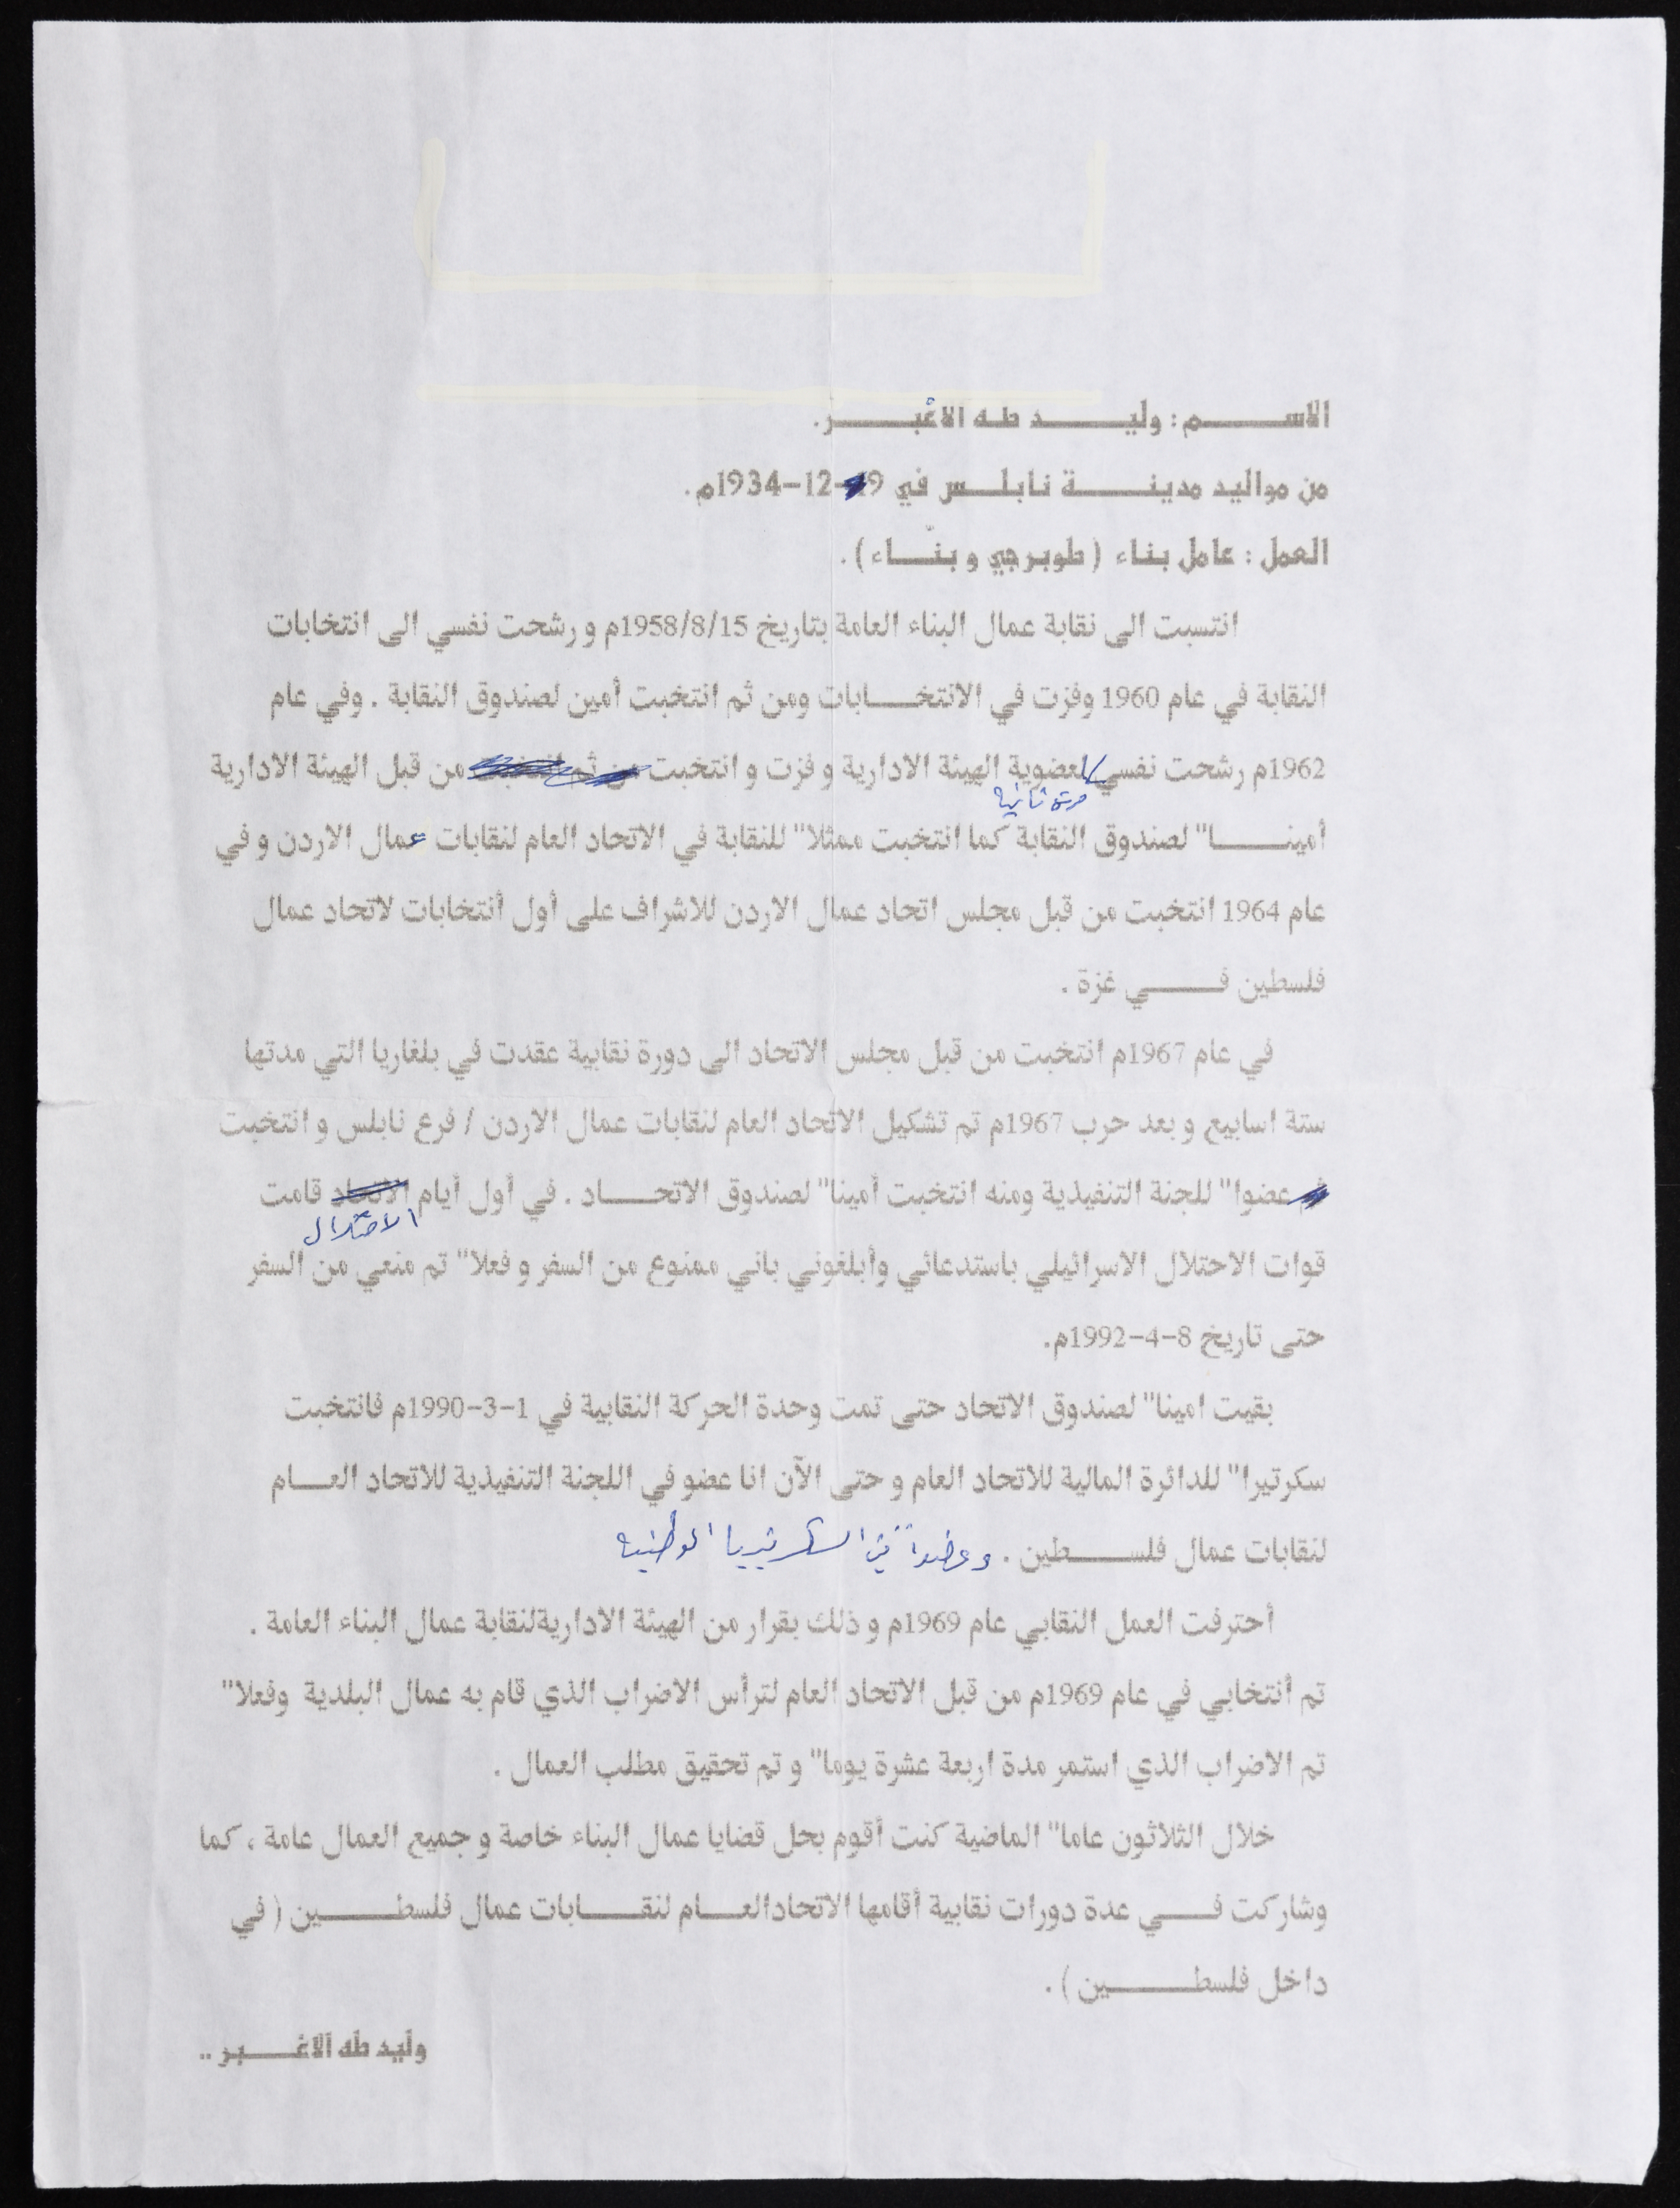 الاســـم : وليـــد طـه الاغبـــر.
من مواليد مدينـــة نابلــس في 9-12-1934م .
العمل : عامل بناء ( طوبرجي و بنّــاء ) .
انتسبت الى نقابة عمال البناء العامة بتاريخ 1958/8/15م و رشحت نفسي الى انتخابات
النقابة في عام 1960 وفزت في الانتخـــابات ومن ثم انتخبت أمين لصندوق النقابة . وفي عام
1962م رشحت نفسي لعضوية الهيئة الادارية و فزت و انتخبت من ثم انتخبت من قبل الهيئة الادارية
مرة ثانية
أمينـــا" لصندوق النقابة كما انتخبت ممثلا" للنقابة في الاتحاد العام لنقابات عمال الاردن و في
عام 1964 انتخبت من قبل مجلس اتحاد عمال الاردن للاشراف على أول أنتخابات لاتحاد عمال
فلسطين فـــي غزة .
في عام 1967م انتخبت من قبل مجلس الاتحاد الى دورة نقابية عقدت في بلغاريا التي مدتها
ستة اسابيع و بعد حرب 1967م تم تشكيل الاتحاد العام لنقابات عمال الاردن / فرع نابلس و انتخبت
عضوا" للجنة التنفيذية ومنه انتخبت أمينا" لصندوق الاتحـــاد . في أول أيام الاتحاد قامت
الاحتلال
قوات الاحتلال الاسرائيلي باستدعائي وأبلغوني باني ممنوع من السفر و فعلا" تم منعي من السفر
حتى تاريخ 8-4-1992م.
بقيت امينا" لصندوق الاتحاد حتى تمت وحدة الحركة النقابية في 1-3-1990م فانتخبت
سكرتيرا" للدائرة المالية للاتحاد العام و حتى الآن انا عضو في اللجنة التنفيذية للاتحاد العـــام
لنقابات عمال فلســـطين . وعضواً في السكرتيريا الوطنية
أحترفت العمل النقابي عام 1969م و ذلك بقرار من الهيئة الاداريةلنقابة عمال البناء العامة .
تم أنتخابي في عام 1969م من قبل الاتحاد العام لترأس الاضراب الذي قام به عمال البلدية وفعلا"
تم الاضراب الذي استمر مدة اربعة عشرة يوما" و تم تحقيق مطلب العمال .
خلال الثلاثون عاما" الماضية كنت أقوم بحل قضايا عمال البناء خاصة و جميع العمال عامة ، كما
وشاركت فـــي عدة دورات نقابية أقامها الاتحادالعـــام لنقـــابات عمال فلسطـــين ( في
داخل فلسطـــين ) .
وليد طه الاغـــبر ..